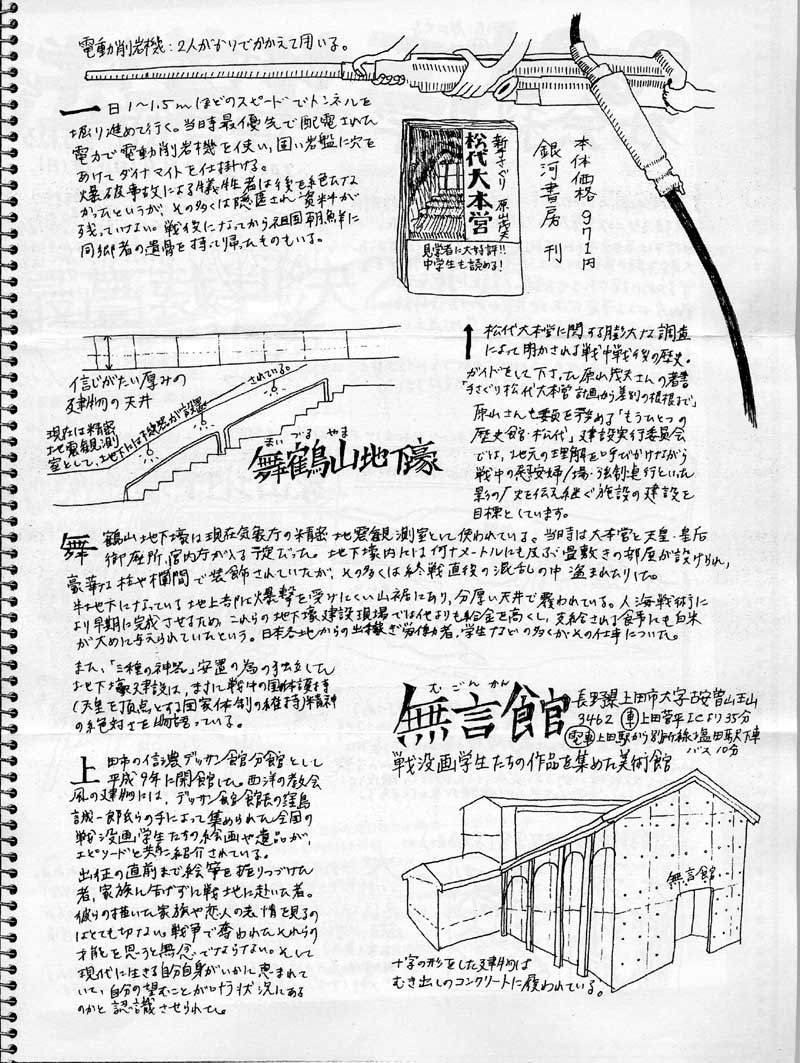 電動削岩機:2人がかりでかかえて用いる。
一日1〜1.5mほどのスピードでトンネルを
堀り進めて行く。当時最優先で配電された
電力で電動削岩機を使い、固い岩盤に穴を
あけてダイナマイトを仕掛ける。
爆破事故による犠牲者は後を絶たな
かったというが、その多くは隠匿され資料が
残っていない。戦後になってから祖国朝鮮に
同郷者の遺骨を持って帰ったものもいる。
新手さぐり
松代大本営
原山茂夫
見学者に大好評!!
中学生も読める!
本体価格971円
銀河書房 刊
↑松代大本営に関する膨大な調査
によって明かされる戦中戦後の歴史。
ガイドをして下さった原山茂夫さんの著書
「手さぐり松代大本営 計画から差別の根源まで」
原山さんも委員を務める「もうひとつの
歴史館・松代」建設実行委員会
では、地元の理解を呼びかけながら
戦中の慰安婦/場・強制連行といった
影の/史を伝え継ぐ施設の建設を
目標としています。
信じがたい厚みの
建物の天井
現在は精密
地震観測
室として、地下には機器が設置
されている。
まいづる やま
舞鶴山地下壕
舞鶴山地下壕は現在気象庁の精密地震観測室として使われている。当時は大本営と天皇・皇后
御座所、宮内庁が入る予定だった。地下壕内には何十メートルにも及ぶ畳敷きの部屋が設けられ、
豪華な柱や欄間で装飾されていたが、その多くは終戦直後の混乱の中盗まれたりした。
半地下になっている地上部は爆撃を受けにくい山裾にあり、分厚い天井で覆われている。人海戦術に
より早期に完成させるため、これらの地下壕建設現場では他よりも給金を高くし、支給される食事にも白米
が大めに与えられていたという。日本各地からの出稼ぎ労働者、学生などの多くがその仕事についた。
また、「三種の神器」安置の為の独立した
地下壕建設は、まさに戦中の国体護持
(天皇を頂点とする国家体制の維持)精神
の絶対さを物語っている。
むごんかん
無言館
長野県上田市大字古安曽山王山
3462 車上田菅平ICより35分
電車上田駅から別所線・塩田町駅下車
バス10分
戦没画学生たちの作品を集めた美術館
上田市の信濃デッサン館分館として
平成9年に開館した。西洋の教会
風の建物には、デッサン館館長の窪島
誠一郎氏らの手によって集められた全国の
戦没画学生たちの絵画や遺品が、
エピソードと共に紹介されている。
出征の直前まで絵筆を握りつづけた
者、家族に告げずに戦地に赴いた者。
彼らの描いた家族や恋人の表情を見るの
はとても切ない。戦争で奪われたそれらの
才能を思うと無念でならない。そして
現代に生きる自分自身がいかに恵まれて
いて、自分の望むことが叶う状況にある
のかと認識させられた。
無言館
十字の形をした建物は
むき出しのコンクリートに覆われている。